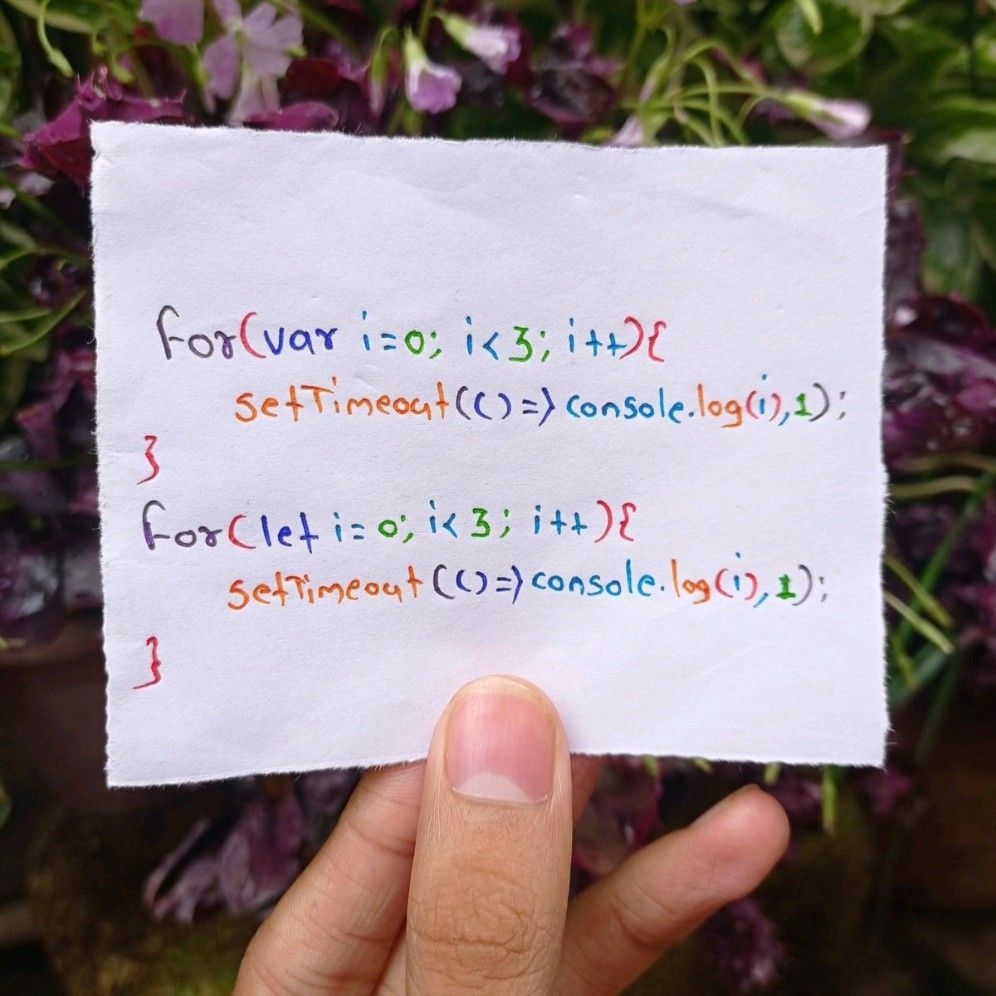 for(var i=0; i<3; i++){
setTimeout(()=>console.log(i),1);
}
for(let i=0; i<3; i++){
setTimeout(()=>console.log(i),1);
}